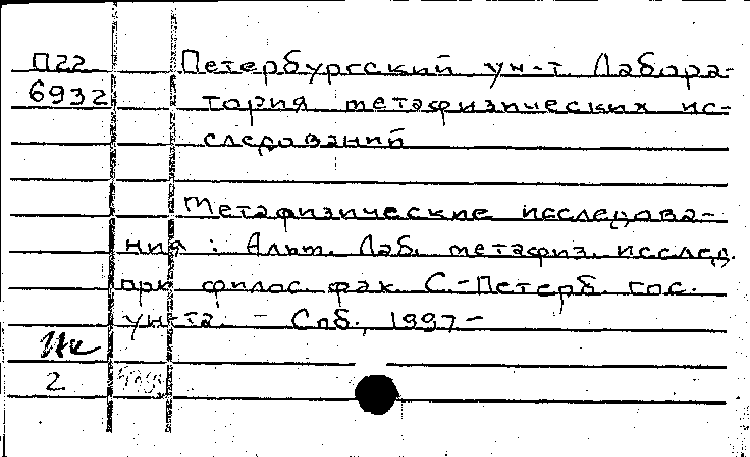 П22 Петербургский ун-т. Лабора-
6932 тория метафизических ис-
следований
Метафизические исследова-
ния : Альм. Лаб. метафиз. исслед.
при филос. фак. С.-Петерб. гос.
ун-та. - Спб., 1997-
2